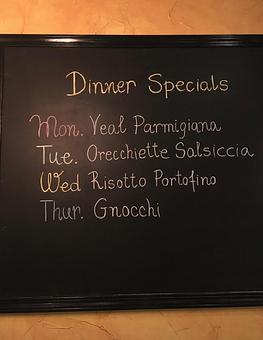 Dinner Specials
Mon. Veal Parmigiana
Tue. Orecchiette Salsiccia
Wed Risotto Portofino
Thur. Gnocchi